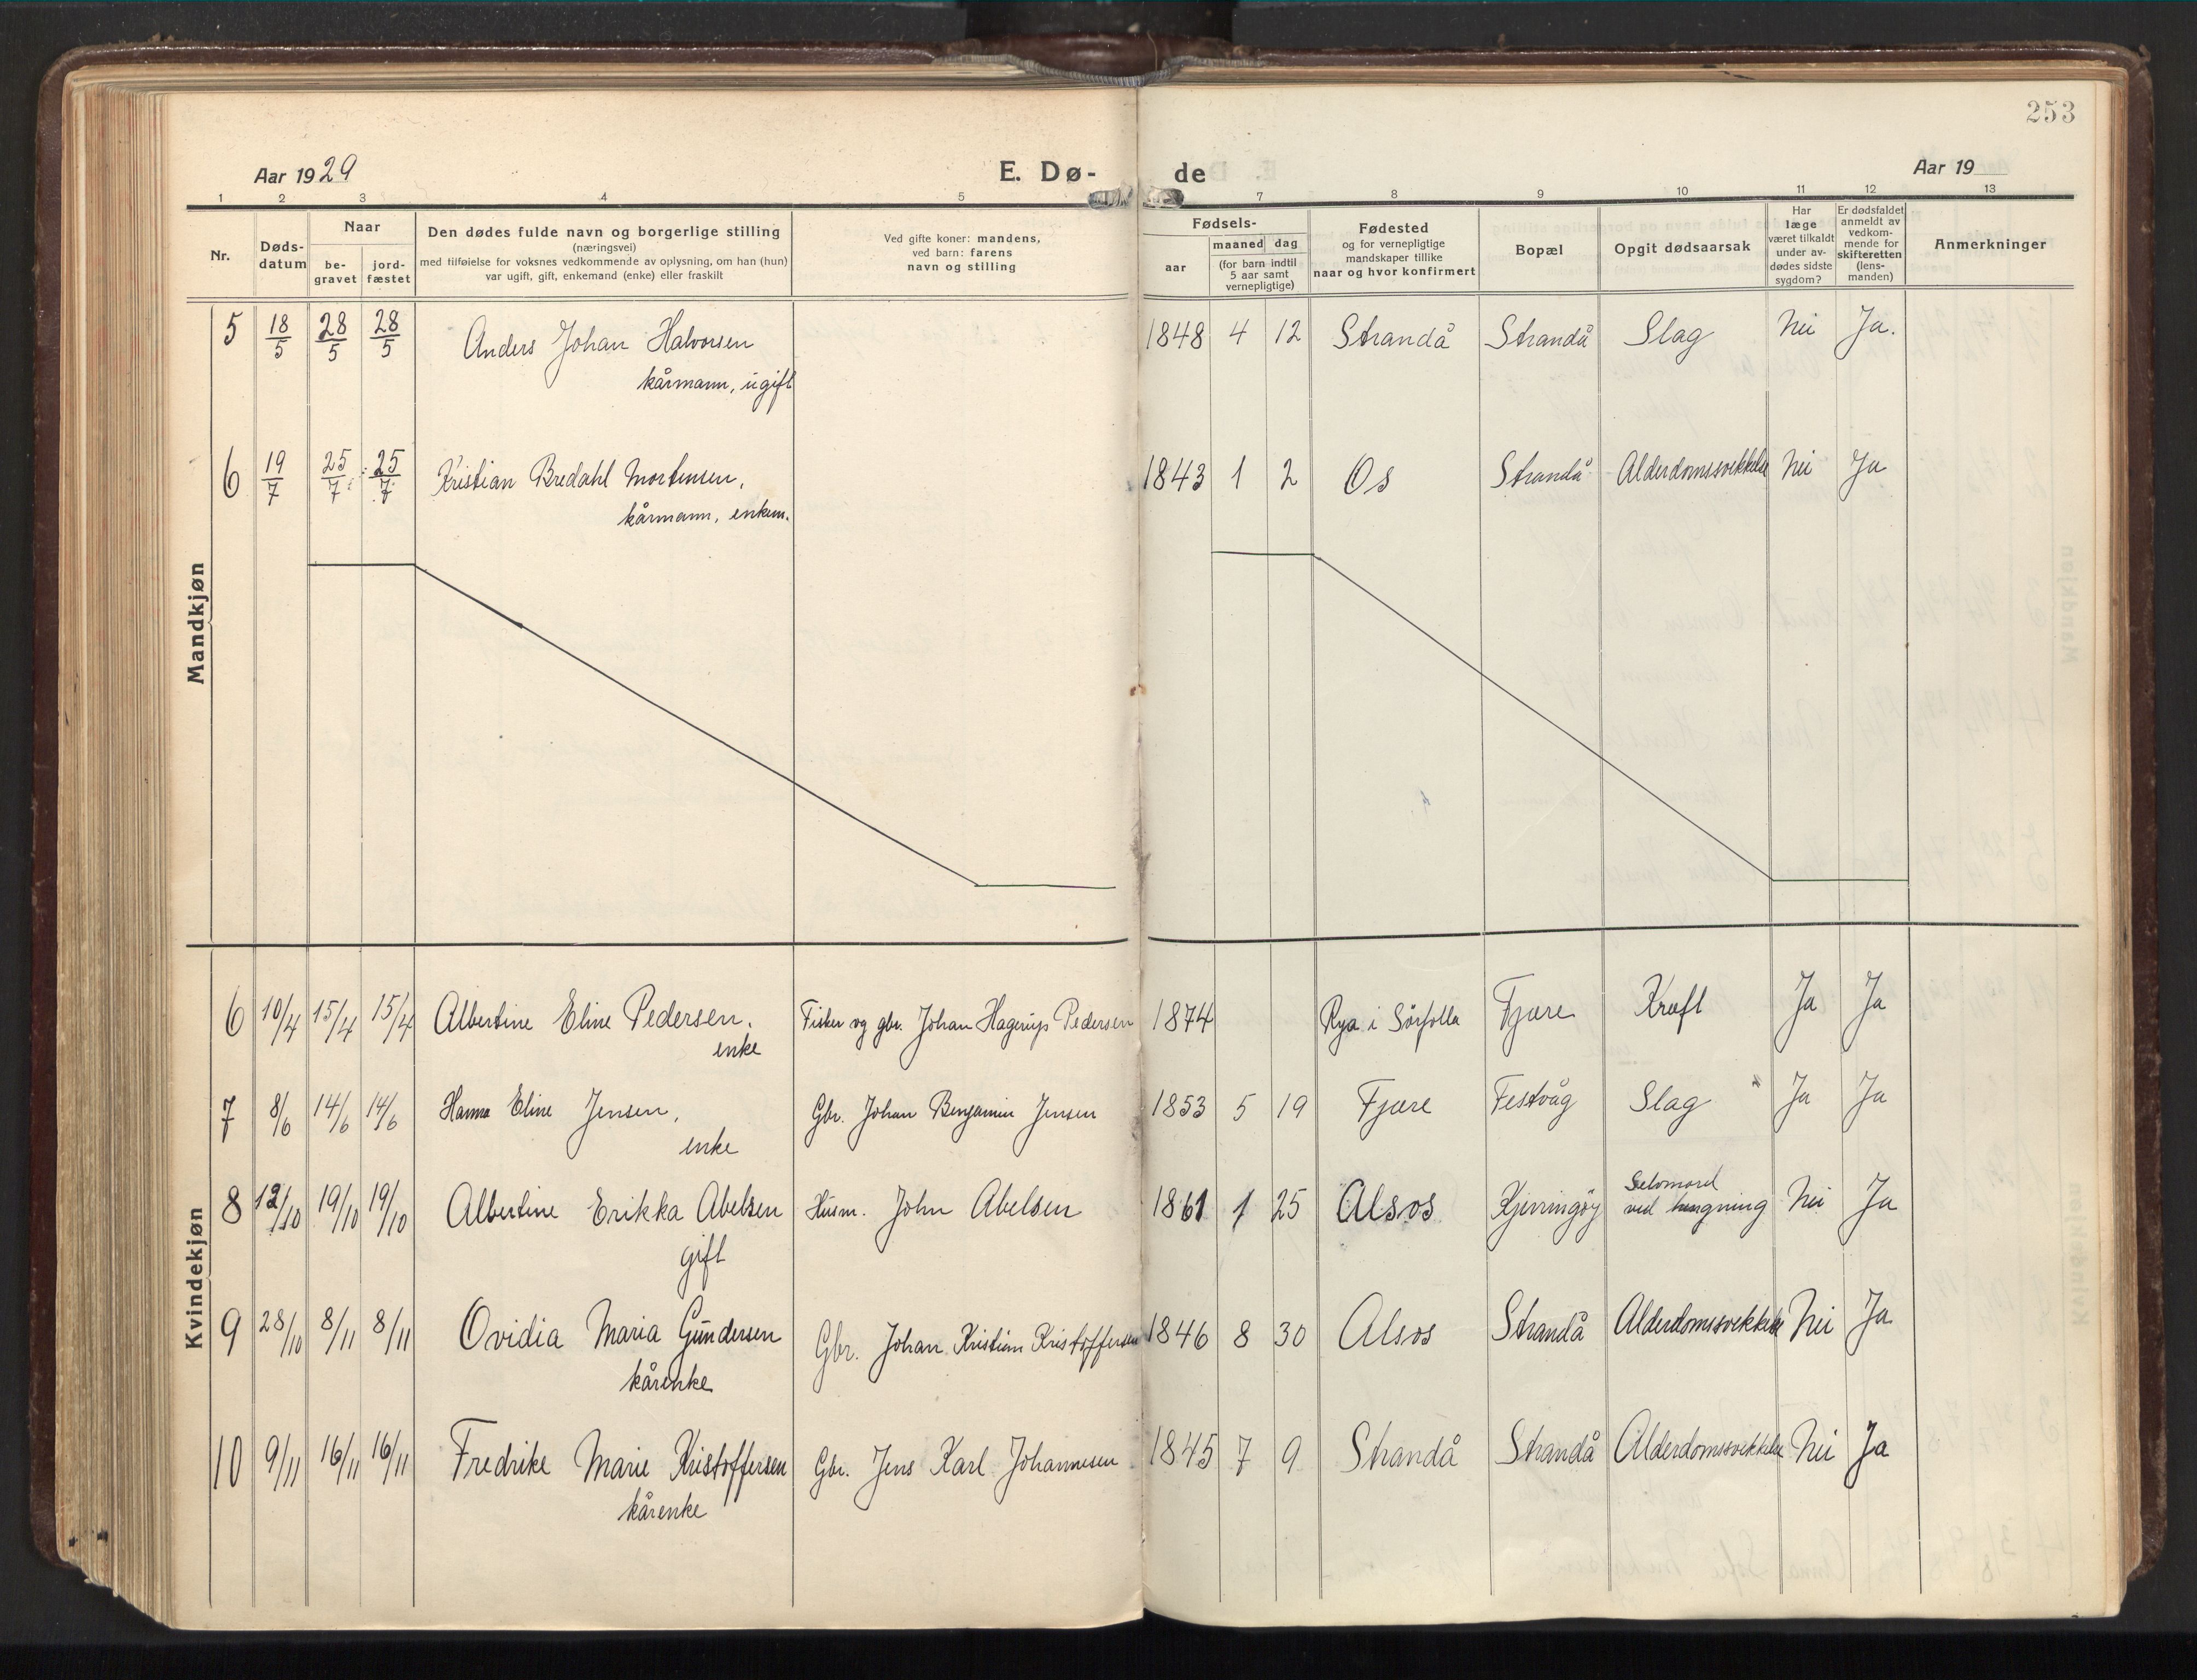 253
Aar 1929
E. Dø-
de
Aar 19
1 2 3 4 5 7 8 9 10 11 12 13
Nr.
Døds-
datum
Naar
be-
gravet
jord-
fæstet
Den dødes fulde navn og borgerlige stilling
(næringsvei)
med tilføielse for voksnes vedkommende av oplysning, om han (hun)
var ugift, gift, enkemand (enke) eller fraskilt
Ved gifte koner: mandens,
ved barn: farens
navn og stilling
Fødsels-
aar
maaned dag
(for barn indtil
5 aar samt
vernepligtige)
Fødested
og for vernepligtige
mandskaper tillike
naar og hvor konfirmert
Bopæl
Opgit dødsaarsak
Har
læge
været tilkaldt
under av-
dødes sidste
sygdom?
Er dødsfaldet
anmeldt av
vedkom-
mende for
skifteretten
(lens-
manden)
Anmerkninger
Mandkjøn
5 18/5 28/5 28/5 Anders Johan Halvorsen 1848 4 12 Strandå Strandå Slag Nei Ja.
kårmann, ugift
6 19/7 25/7 25/7 Kristian Bredahl Mortensen, 1843 1 2 Os Strandå Alderdomssvekkelse Nei Ja
kårmann, enkem.
Kvindekjøn
6 10/4 15/4 15/4 Albertine Eline Pedersen. Fisker og gbr. Johan Hagerup Pedersen 1874 Rya i Sörfolla Fjære Kreft Ja Ja
enke
7 8/6 14/6 14/6 Hanna Eline Jensen, Gbr. Johan Benjamin Jensen 1853 5 19 Fjære Festvåg Slag Ja Ja
enke
8 12/10 19/10 19/10 Albertine Erikka Abelsen Husm. John Abelsen 1861 1 25 Alsos Kjerringöy Selvmord
ved hengning Nei Ja
gift
9 28/10 8/11 8/11 Ovidia Maria Gundersen Gbr. Johan Kristian Kristoffersen 1846 8 30 Alsos Strandå Alderdomssvekkelse Nei Ja
kårenke
10 9/11 16/11 16/11 Fredrike Marie Kristoffersen Gbr. Jens Karl Johannesen 1845 7 9 Strandå Strandå Alderdomssvekkelse Nei Ja
kårenke